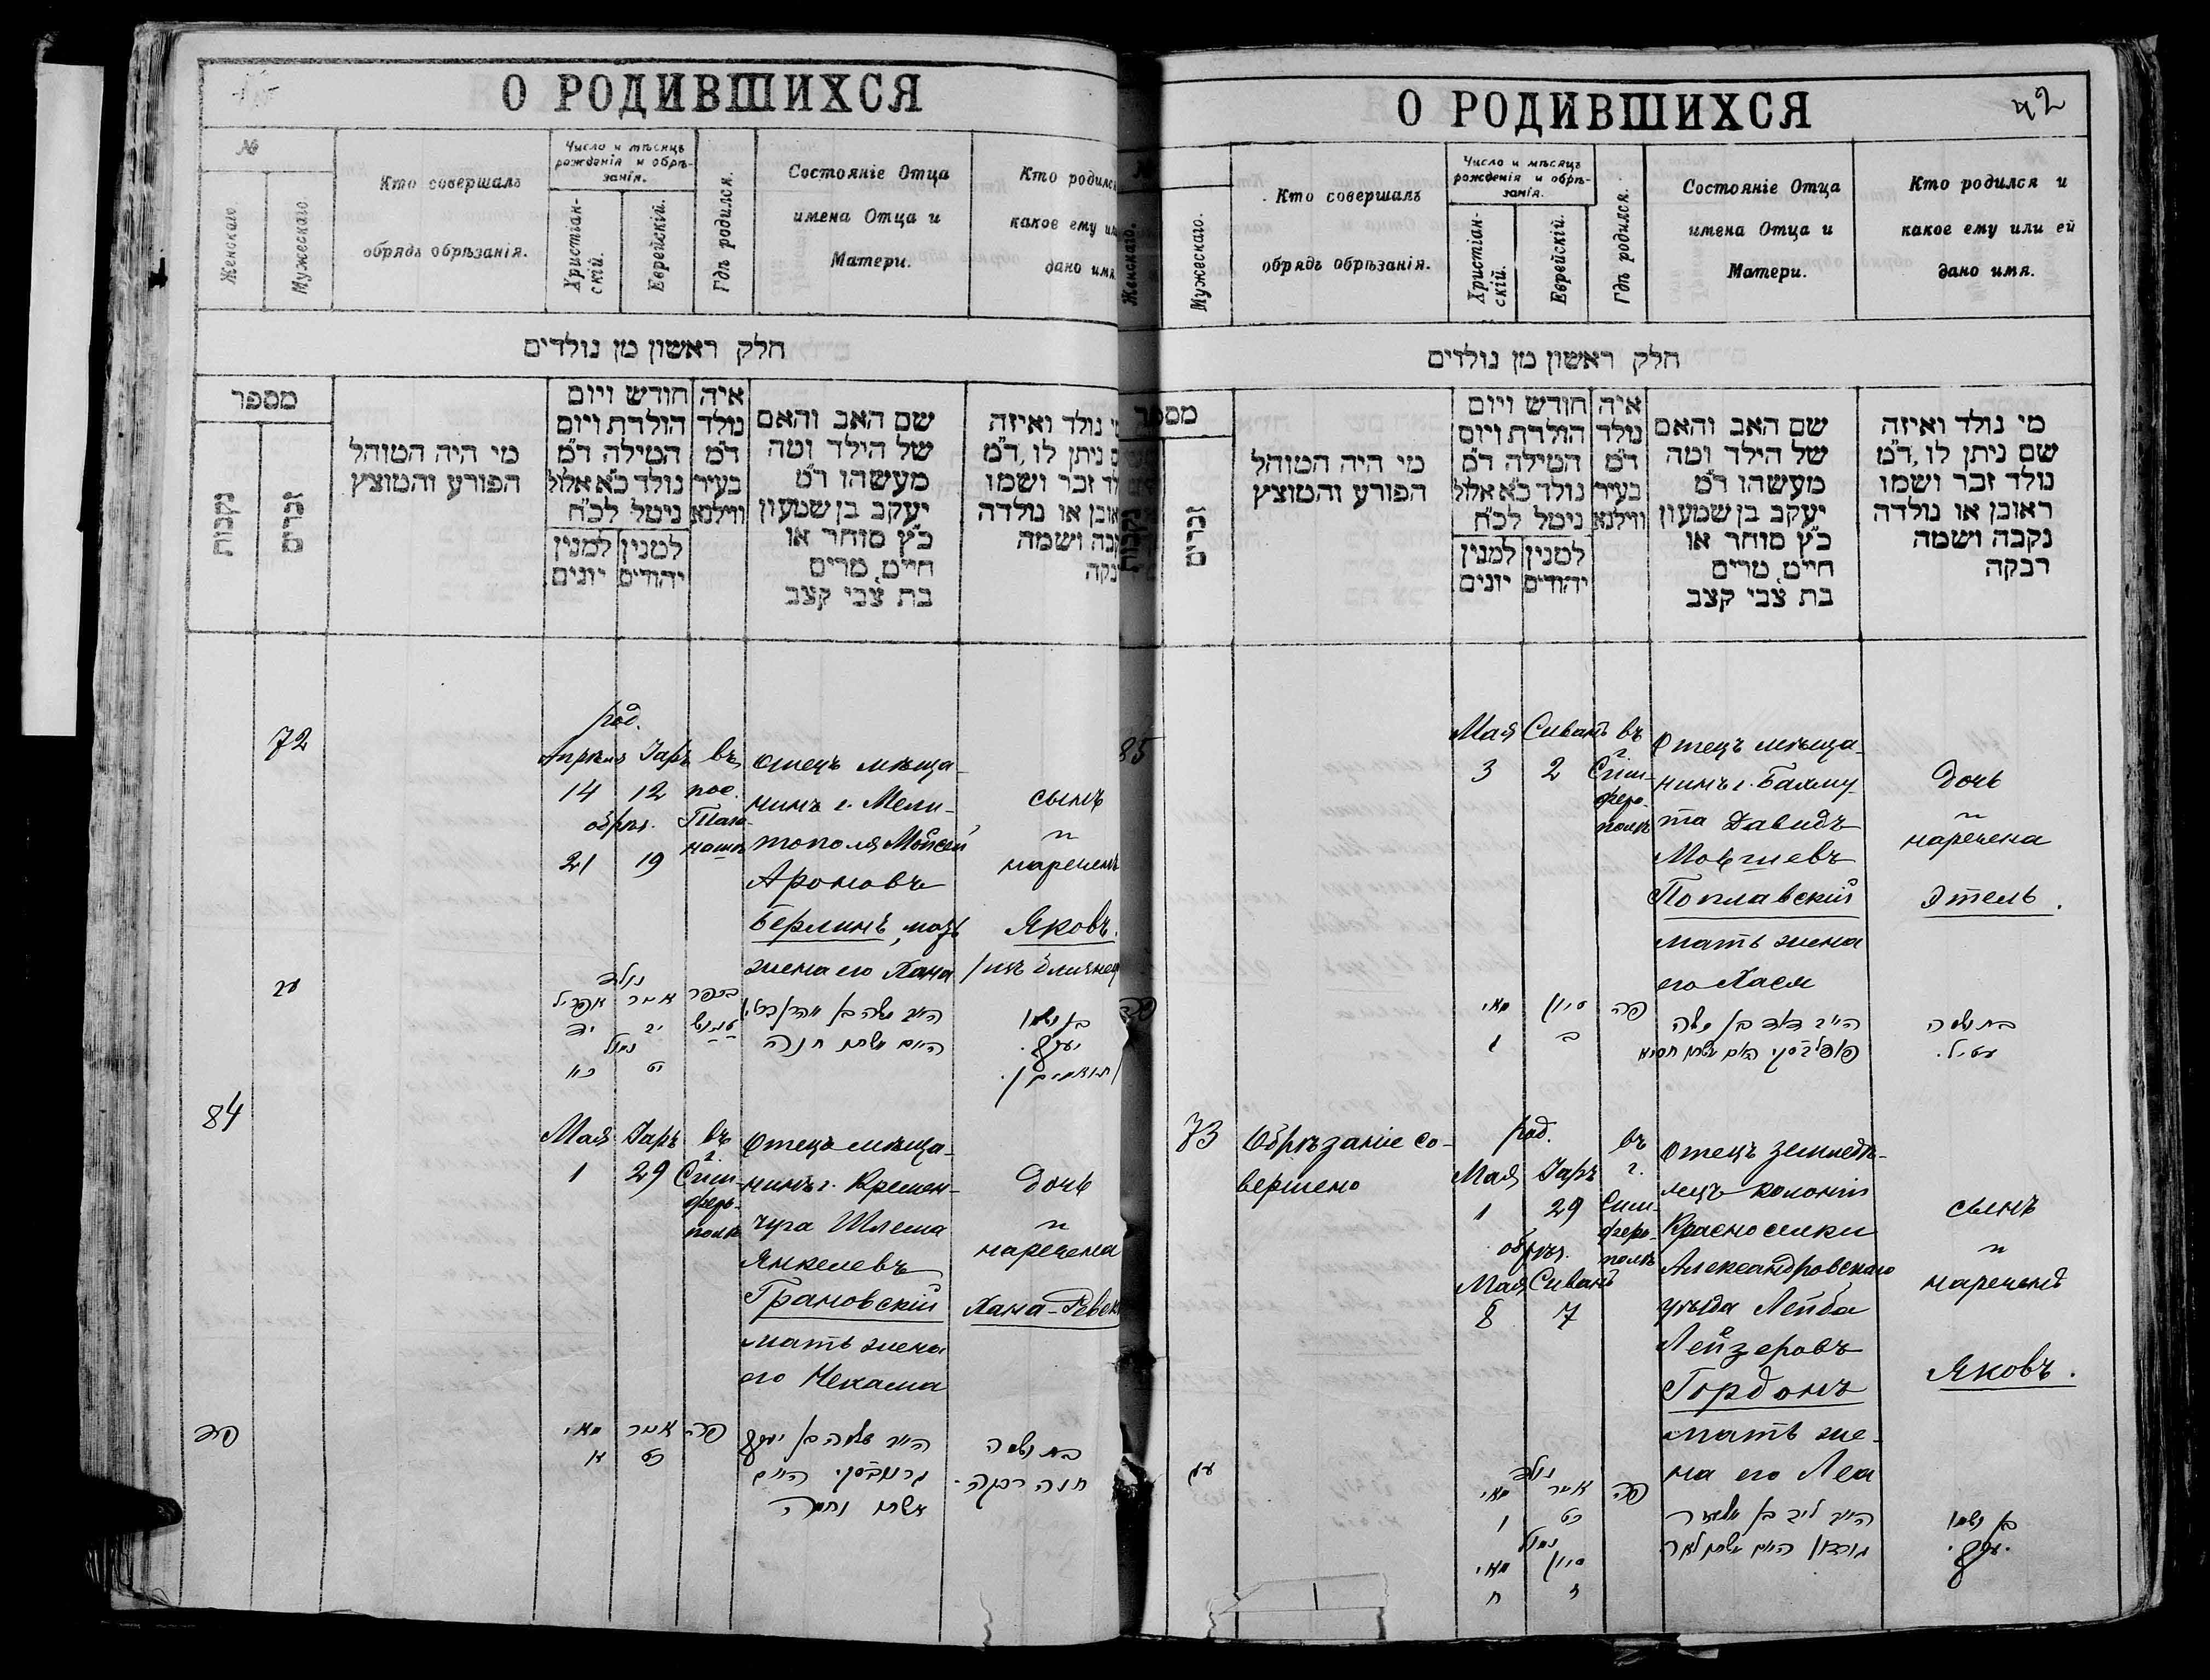 О РОДИВШИХСЯ
№
Женскаго
Мужескаго
Кто совершалъ
обрядъ обрѣзанія.
Число и мѣсяцъ
рожденія и обрѣ-
занія.
Христіан-
скій.
Еврейскій.
Гдѣ родился.
Состояніе Отца
имена Отца и
Матери.
Кто родилс
какое ему ил
дано имя
חלק ראשון מן נולדים
מספר
נקבות
זכרים
מי היה המוהל
הפורע והמוצץ
חודש ויום
הולדת ויום
המילה ד"מ
נולד כ"א אלול
ניטל לכ"ח
למנין למנין
יהודים יונים
איה
נולד
ד"מ
בעיר
ווילנא
שם האב והאם
של הילד ומה
מעשהו ד"מ
יעקב בן שמעון
כ"ץ סוחר או
חייט, מרים
בת צבי קצב
י נולד ואיזה
ם ניתן לו, ד"מ
לד זכר ושמו
אובן או נולדה
קבה ושמה
בקה
72
род.
Апрѣля Іаръ
14 12
обрѣз.
21 19
въ
пос.
отецъ мѣща-
нинъ г. Мели-
тополя Мойсей
Ароновъ
Берлинъ, мать
жена его Хана
сынъ
и
нареченъ
Яковъ.
עב
נולד
אייר אפריל
יב יד
נימול
יט כא
הא״ב משה בן אהרן ברלין
הא״ם אשתו חנה
בן ושמו
יעקב.
84
Мая Іаръ
1 29
въ
г.
Сим-
феро-
полѣ
отецъ мѣща-
нинъ г. Кремен-
чуга Шлема
Янкелевъ
Грановскій
мать жена
его Нехама
дочь
и
наречена
Хана-Ревек
פד
אייר מאי
כט א
פה
הא״ב שלמה בן יעקב
גרנובסקי הא״ם
אשתו נחמה
בת ושמה
חנה רבקה.
О РОДИВШИХСЯ
42
№
Женскаго.
Мужескаго.
Кто совершалъ
обрядъ обрѣзанія.
Число и мѣсяцъ
рожденія и обрѣ-
занія.
Христіан-
скій.
Еврейскій.
Гдѣ родился.
Состояніе Отца
имена Отца и
Матери.
Кто родился и
какое ему или ей
дано имя.
חלק ראשון מן נולדים
מספר
נקבות
זכרים
מי היה המוהל
הפורע והמוצץ
חודש ויום
הולדת ויום
המילה ד"מ
נולד כ"א אלול
ניטל לכ"ח
למנין למנין
יהודים יונים
איה
נולד
ד"מ
בעיר
ווילנא
שם האב והאם
של הילד ומה
מעשהו ד"מ
יעקב בן שמעון
כ"ץ סוחר או
חייט, מרים
בת צבי קצב
מי נולד ואיזה
שם ניתן לו, ד"מ
נולד זכר ושמו
ראובן או נולדה
נקבה ושמה
רבקה
85
Мая Сиванъ
3 2
въ
г.
Сим-
феро-
полѣ
отецъ мѣща-
нинъ г. Бахму-
та Давидъ
Мовшевъ
Поплавскій
мать жена
его Хася
дочь
и
наречена
Этель.
פה
סיון מאי
ב
פה
הא״ב דוד בן משה
פופלבסקי הא״ם אשתו חסיא
בת ושמה
עטיל.
73
Обрѣзаніе со-
вершено
род.
Мая Іаръ
1 29
обрѣз.
Мая Сиванъ
8 7
въ
г.
Сим-
феро-
полѣ
отецъ землед-
лецъ колоніи
Красноселки
Александровскаго
уѣзда Лейба
Лейзеровъ
Гордонъ
мать же-
на его Леа
сынъ
и
нареченъ
Яковъ.
עג
נולד
אייר מאי
כט
נימול
סיון מאי
ז ח
פה
הא״ב ליב בן אליעזר
גורדון הא״ם אשתו לאה
בן ושמו
יעקב.